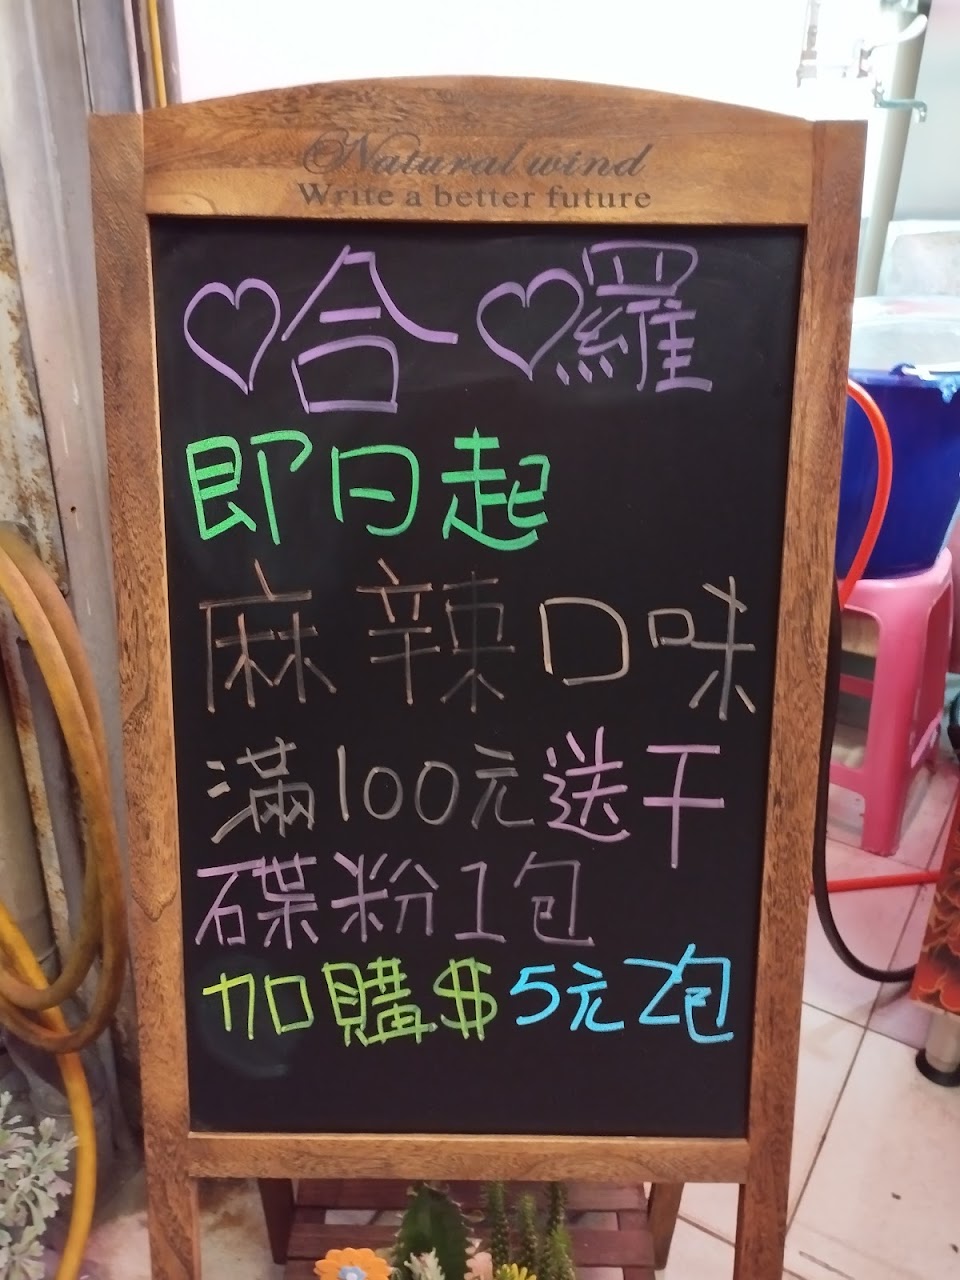 Natural wind
Write a better future
♡合♡羅
即日起
麻辣口味
滿100元送干
碟粉1包
加購$5元乙包